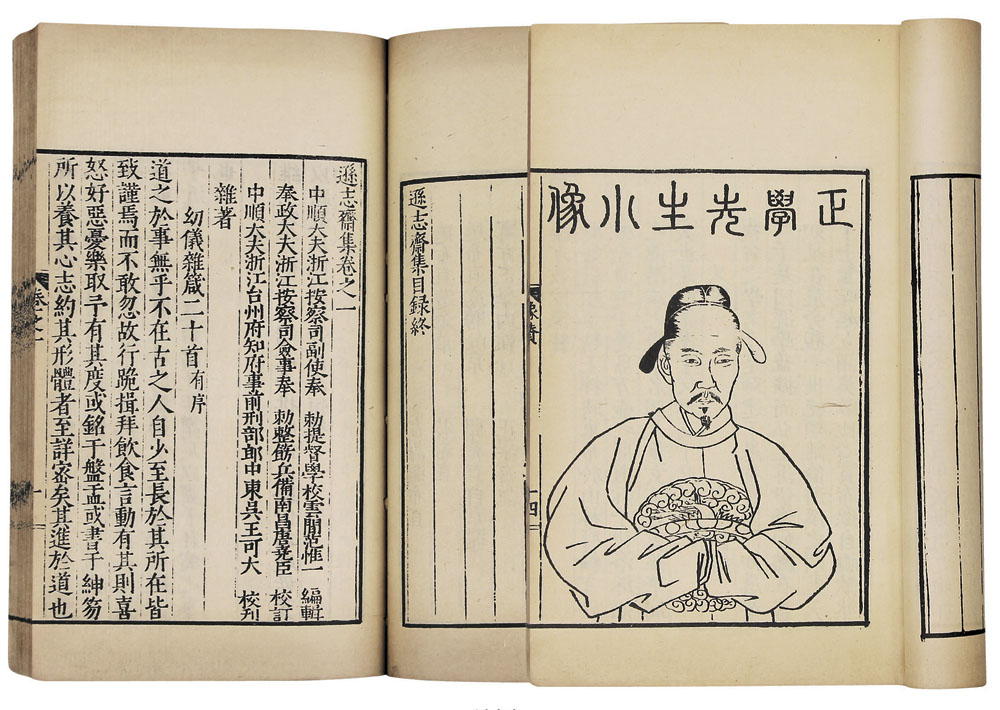 正學先生小像
像贊
十四
遜志齋集目録終
遜志齋集卷之一
中順大夫浙江按察司副使奉 勅提督學校雲間范惟一 編輯
奉政大夫浙江按察司僉事奉 勅整飭兵備南昌唐堯臣 校訂
中順大夫浙江台州府知府事前刑部郎中東吳王可大 校刋
雜著
幼儀雜箴二十首有序
道之於事無乎不在古之人自少至長於其所在皆
致謹焉而不敢忽故行跪揖拜飲食言動有其則喜
怒好惡憂樂取予有其度或銘于盤盂或書于紳笏
所以養其心志約其形體者至詳密矣其進於道也
卷之一
一